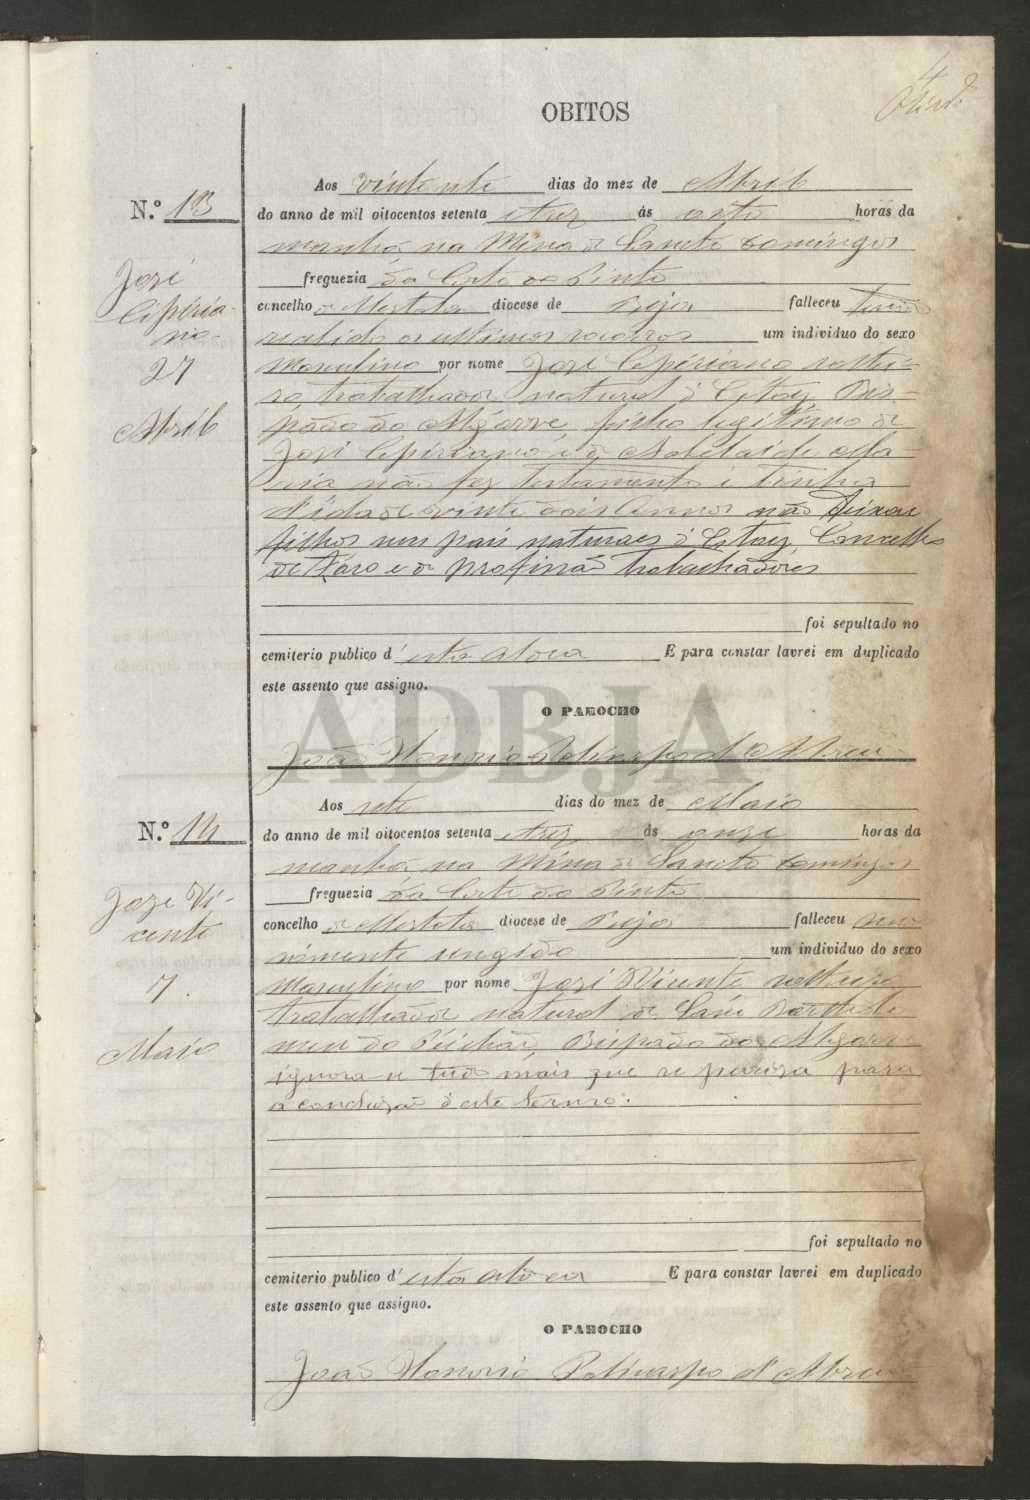 4
OBITOS
Aos vinte sete dias do mez de Abril
N.º 13
do anno de mil oitocentos setenta e trez ás oito horas da
manhã, na Mina de Sancto Domingos
freguezia da Corte do Pinto
concelho de Mertola diocese de Beja falleceu tendo
recebido os ultimos socorros um individuo do sexo
Masculino por nome José Cipiriano soltei-
ro, trabalhador natural d'Estoy, Bis-
pado do Algarve, filho legitimo de
José Cipiriano e de Adelaide Ma-
ria não fez testamento e tinha
d'idade vinte dois Annos não deixou
filhos seus pais naturaes d'Estoy, Concelho
de Faro e de profissão trabalhadores
José
Cipiria-
no-
27
Abril
foi sepultado no
cemiterio publico d'esta aldeia E para constar lavrei em duplicado
este assento que assigno.
O PAROCHO
João Honorio Policarpo d'Abreu
ADBJA
Aos sete dias do mez de Maio
N.º 14
do anno de mil oitocentos setenta e trez ás onze horas da
manhã, na Mina de Sancto Domingos
freguezia da Corte do Pinto
concelho de Mertola diocese de Beja falleceu
ungido um individuo do sexo
Masculino por nome José Vicente solteiro
trabalhador natural de Sam Bartholo
meu do Peichão, Bispado do Algarve
ignora-se tudo mais que se precisa para
a concluzão d'este termo.
Joze Vi-
cente
7.
Maio
foi sepultado no
cemiterio publico d'esta aldeia E para constar lavrei em duplicado
este assento que assigno.
O PAROCHO
João Honorio Policarpo d'Abreu